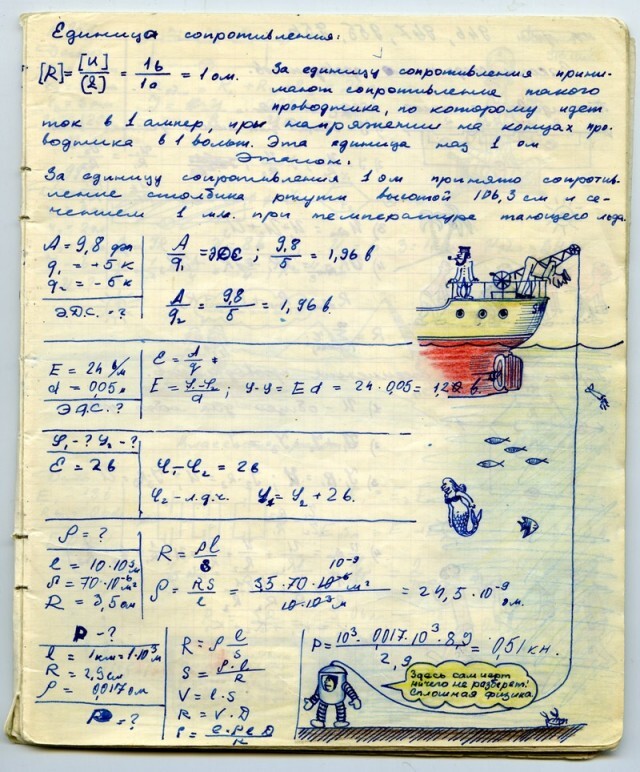 Единица сопротивления:
[R]=[U]/(I) = 1в/1а = 1 ом.
За единицу сопротивления прини-
мают сопротивление такого
проводника, по которому идет
ток в 1 ампер, при напряжении на концах про-
водника в 1 вольт. Эта единица наз 1 ом
Эталон:
За единицу сопротивления 1 ом принято сопротив-
ление столбика ртути высотой 106,3 см и се-
чением 1 мм. при температуре тающего льда.
A = 9,8 дж
q₁ = +5 к
q₂ = -5 к
Э.Д.С. = ?
A/q₁ = ЭДС ; 9,8/5 = 1,96 в
A/q₂ = 9,8/5 = 1,96 в.
E = 24 в/м
d = 0,05 м
Э.Д.С. ?
Ɛ = A/q
E = φ-φ₂/d ; φ-φ = Ed = 24·0,05 = 1,2 в.
φ₁-? φ₂-?
Ɛ = 2в
φ₁-φ₂ = 2в
φ₂ = φ₂ + 2в.
ρ = ?
l = 10·10³м
S = 70·10⁻⁶м²
R = 3,5 ом
R = ρl/S
ρ = RS/l = 3,5·70·10⁻⁶м²/10·10³м = 24,5·10⁻⁹ ом.
10⁻⁹
P - ?
l = 1км = 1·10³м
R = 2,9 ом
ρ = 0,017 ом
P = ?
R = ρ l/s
S = ρ·l/R
V = l·S
R = V·D
P = l·ρ l D/R
P = 10³·0,017·10³·8,9/2,9 = 0,51 кн.
Здесь сам черт
ничего не разберет!
Сплошная физика.